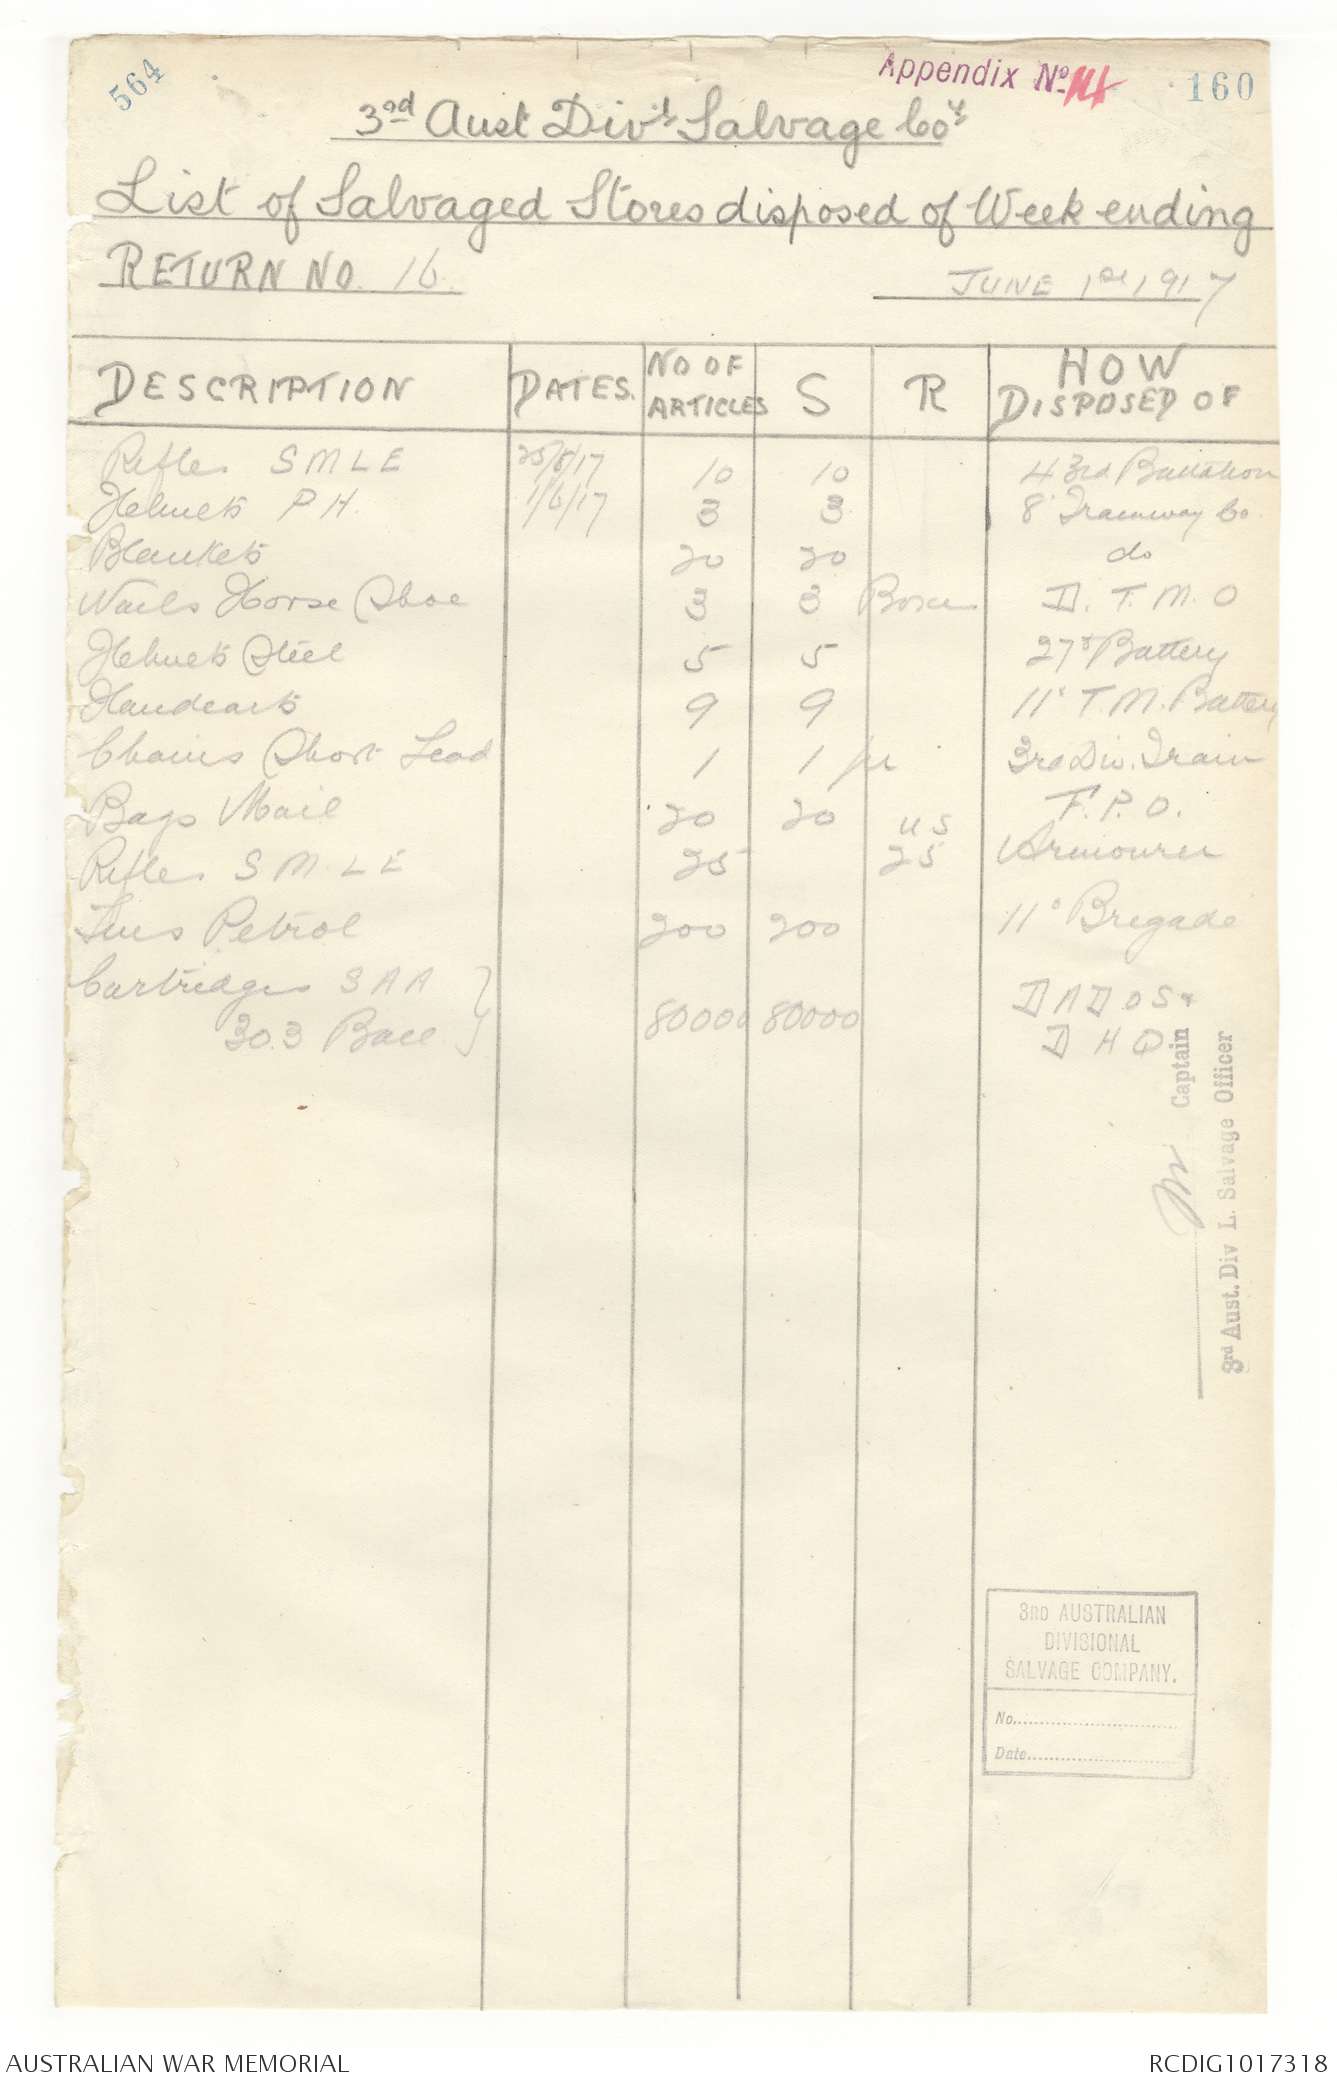 564
Appendix No. 14
160
3rd Aust Div'l Salvage Coy
List of Salvaged Stores disposed of Week ending
RETURN NO. 16. JUNE 1st 1917
DESCRIPTION DATES. NO OF ARTICLES S R HOW DISPOSED OF
Rifles SMLE 25/5/17 10 10 43rd Battalion
Helmets P.H. 1/6/17 3 3 8' Tramway Co.
Blankets 20 20 do
Nails Horse Shoe 3 3 Boxes D. T. M. O
Helmets Steel 5 5 27th Battery
Handcarts 9 9 11' T.M. Battery
Chains Short Lead 1 1 pr 3rd Div. Train
Bags Mail 20 20 F.P.O.
Rifles S M L E 25 US 25 Armourer
Tins Petrol 200 200 11' Bregade
Cartridges SAA }
303 Ball } 80000 80000 DADOS &
D H Q
Captain
3rd Aust. Div L. Salvage Officer
3RD AUSTRALIAN
DIVISIONAL
SALVAGE COMPANY.
No.
Date
AUSTRALIAN WAR MEMORIAL RCDIG1017318